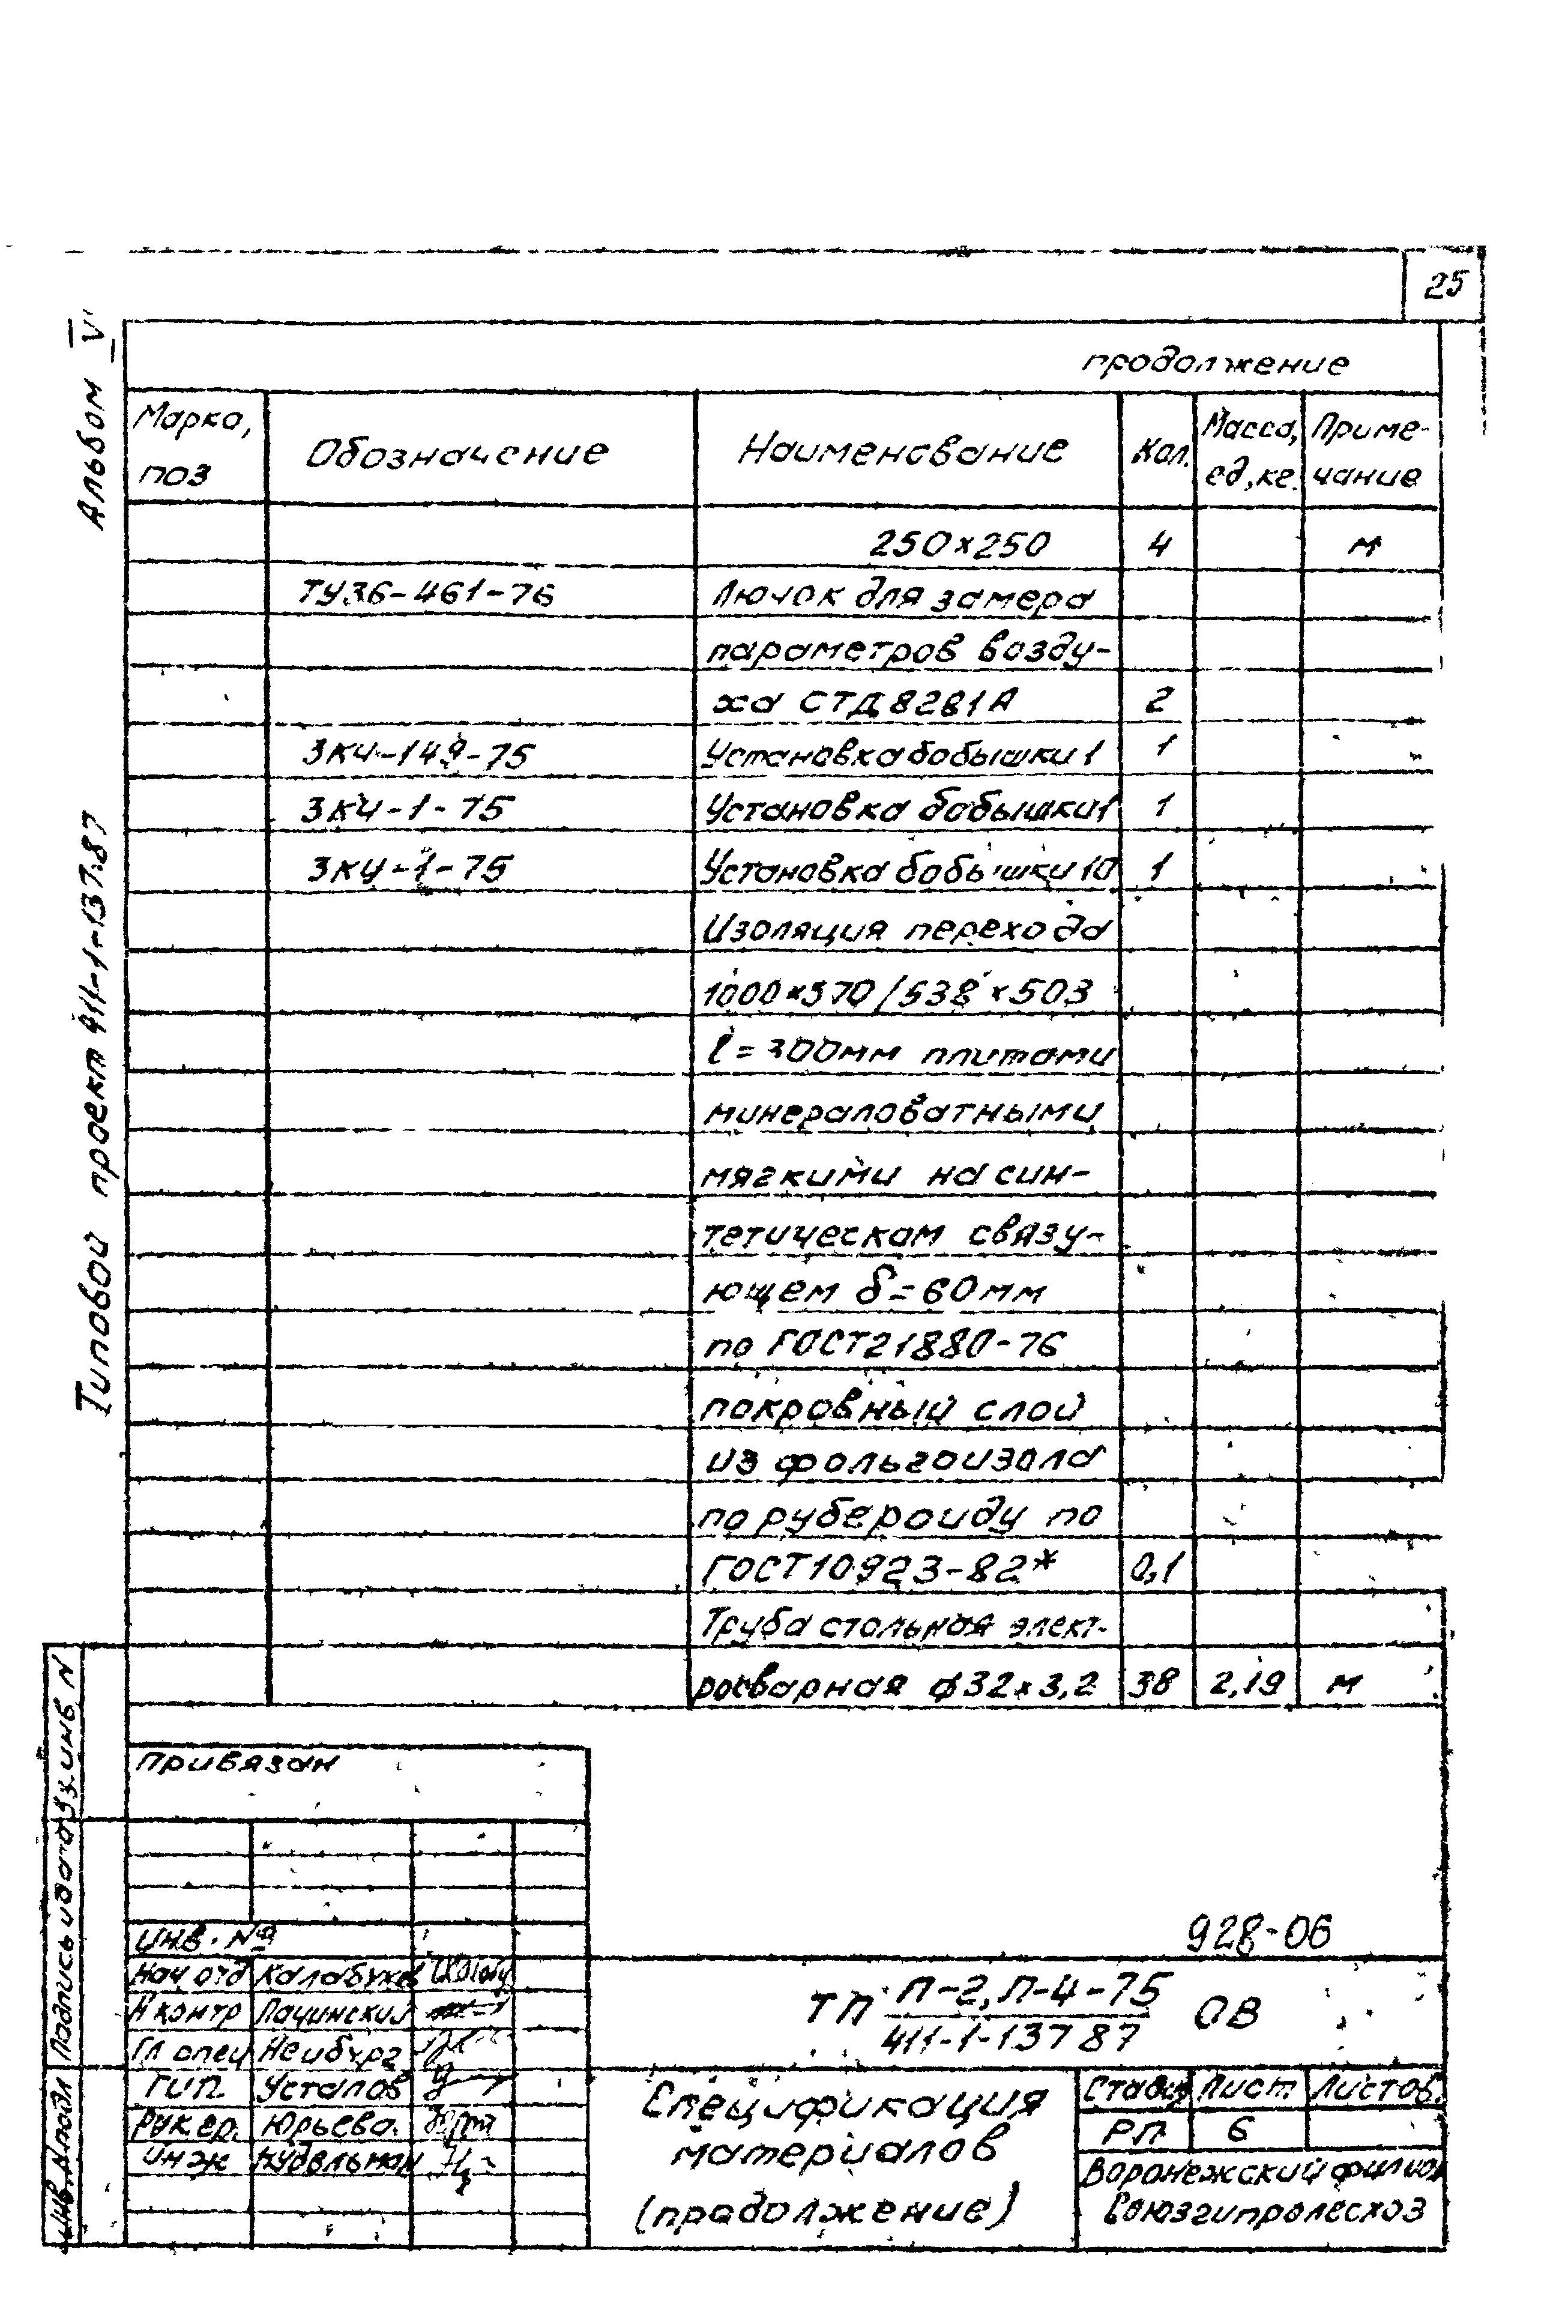 25
Альбом V
Типовой проект 411-1-137.87
продолжение
Марка, поз
Обозначение
Наименование
Кол.
Масса, ед, кг.
Примечание
250×250 4 м
ТУ36-461-76 Лючок для замера
параметров возду-
ха СТД 8281А 2
ЗК4-149-75 Установка бобышки 1 1
ЗК4-1-75 Установка бобышки 1 1
ЗК4-1-75 Установка бобышки 10 1
Изоляция перехода
1000×370/538×503
ℓ=300мм плитами
минераловатными
мягкими на син-
тетическом связу-
ющем δ=60мм
по ГОСТ 21880-76
покровный слой
из фольгоизола
по рубероиду по
ГОСТ 10923-82* 0,1
Труба стальная элект-
росварная ф32×3,2 38 2,19 м
Привязан
Инв. №
928-06
Нач отд
Н контр Лачинский
Гл спец Нейбург
ГИП Усталов
Рук гр. Юрьева.
Инж Нудельман
ТП П-2, Л-4-75 ОВ
411-1-137 87
Спецификация
материалов
(продолжение)
Стадия Лист Листов.
РП 6
Воронежский филиал
Союзгипролесхоз
Инв. N подл
Подпись и дата
Вз. инв. N